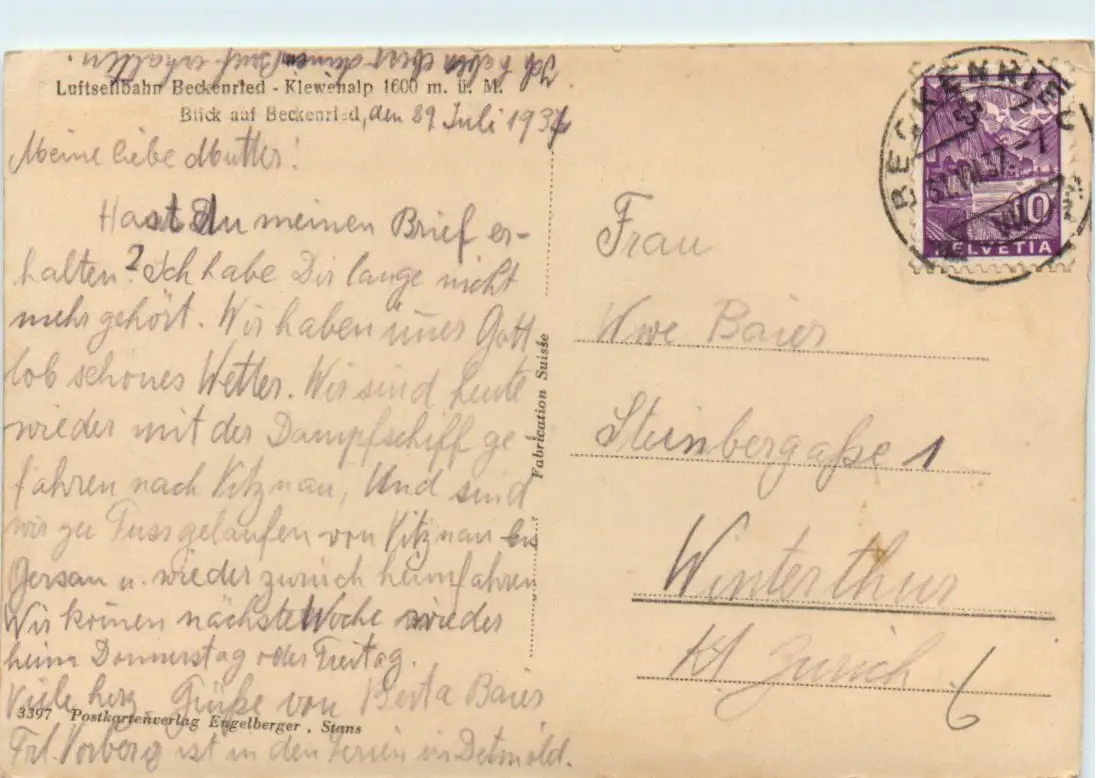 Ich habe eben deinen Brief erhalten.
Luftseilbahn Beckenried - Klewenalp 1600 m. ü. M.
Blick auf Beckenried, den 29 Juli 1937
Meine liebe Mutter!
Hast Du meinen Brief er-
halten? Ich habe Dir lange nicht
mehr gehört. Wir haben imer Gott
lob schönes Wetter. Wir sind heute
wieder mit der Dampfschiff ge
fahren nach Vitznau, Und sind
wir zu Fuss gelaufen von Vitznau bis
Gersau u. wieder zurück heimfahren
Wir kömen nächste Woche wieder
heim Donnerstag oder Freitag.
Viele herz Grüße von Berta Baier
3397 Postkartenverlag Engelberger, Stans
Frl. Vorberg ist in den Ferien in Detmold.
Fabrication Suisse
BECKENRIED
31.VII.37.-7
10
HELVETIA
Frau
Wwe Baier
Steinbergaße 1
Winterthur
Kt Zürich
6